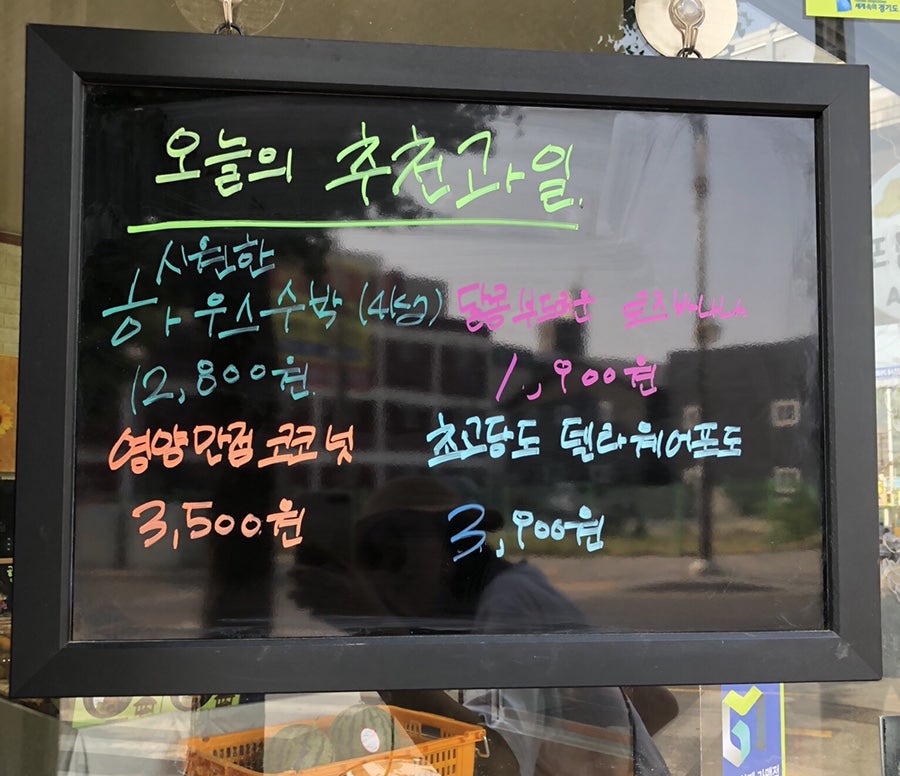 오늘의 추천과일.
시원한
하우스수박 (4kg)
12,800원
달콤부드러운 로즈바나나
1,900원
영양만점 코코넛
3,500원
초고당도 델라웨어포도
3,900원
세계속의 경기도